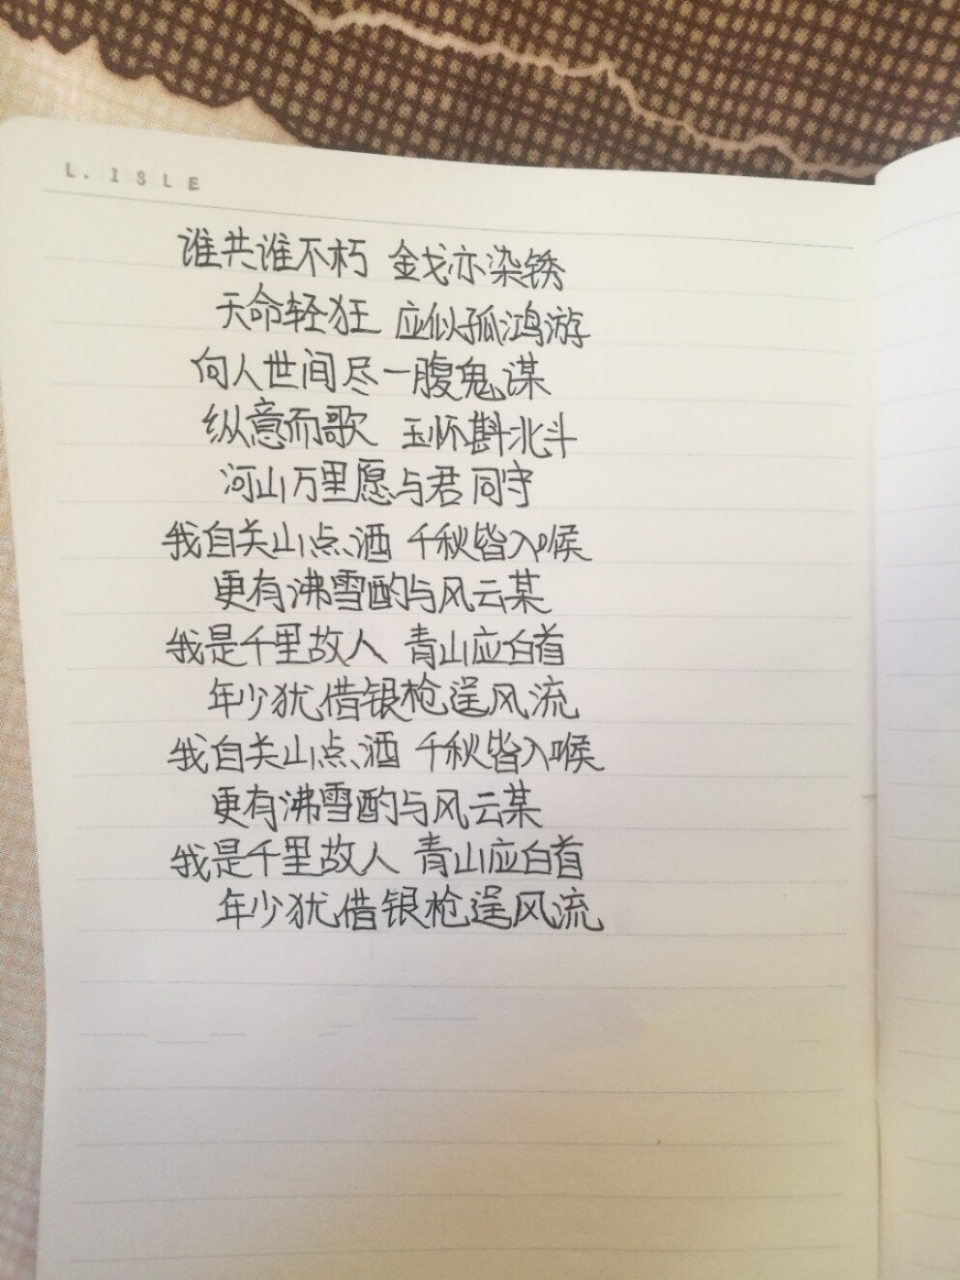 L. ISLE
谁共谁不朽 金戈亦染锈
天命轻狂 应似孤鸿游
向人世间尽一腹鬼谋
纵意而歌 玉怀斟北斗
河山万里愿与君同守
我自关山点酒 千秋皆入喉
更有沸雪酌与风云某
我是千里故人 青山应白首
年少犹借银枪逞风流
我自关山点酒 千秋皆入喉
更有沸雪酌与风云某
我是千里故人 青山应白首
年少犹借银枪逞风流